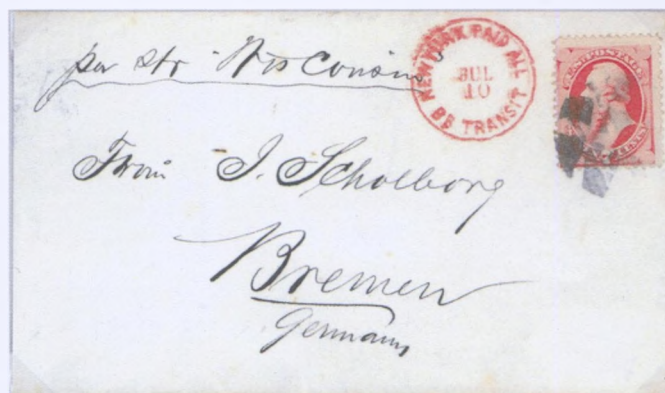 per str "Wisconsin"
NEW YORK PAID ALL
JUL
10
BR TRANSIT
U.S. POSTAGE
From J. Scholborg
Bremen
Germany